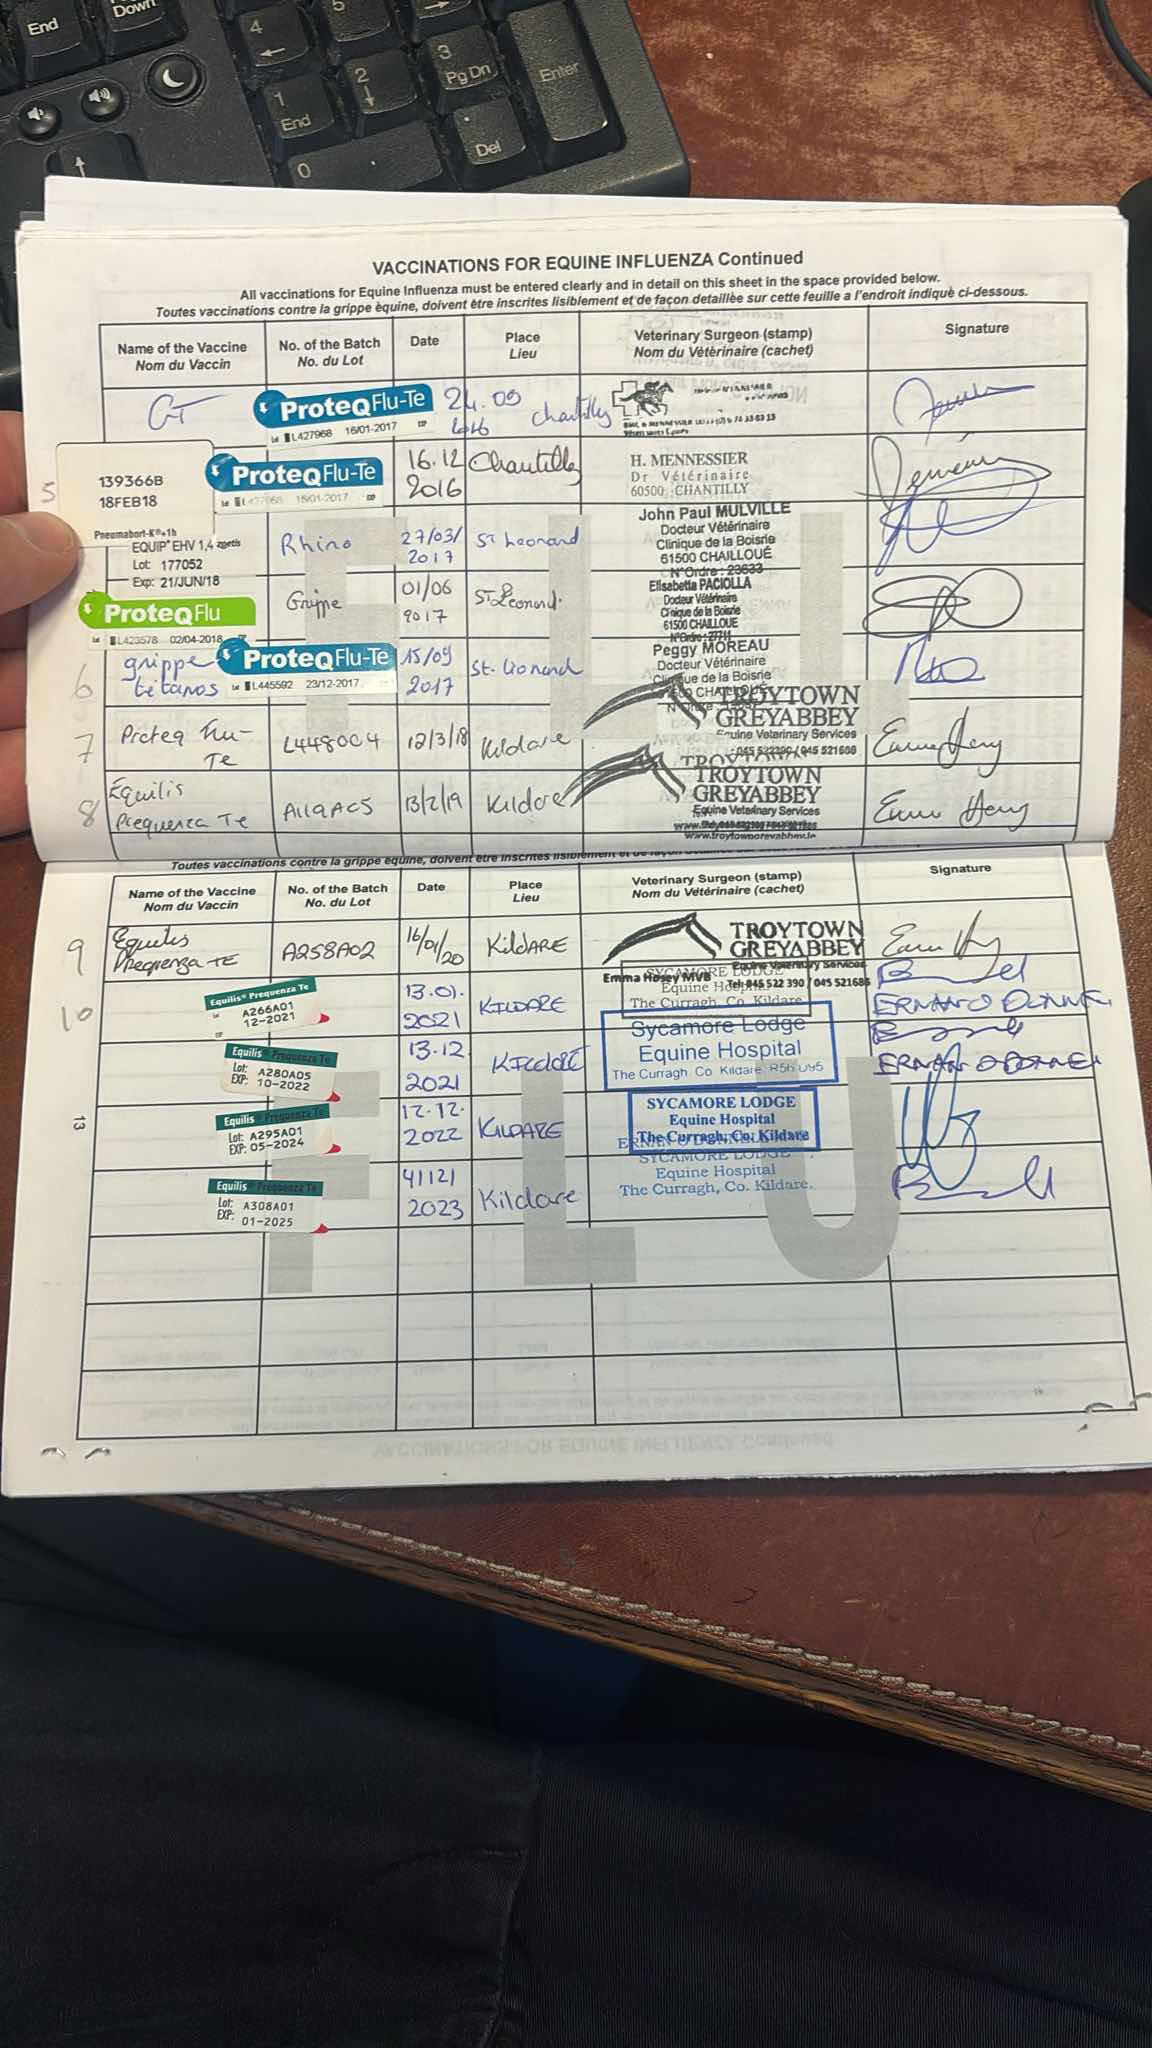 End
Down
4
5
1
End
2
3
Pg Dn
Enter
0
Del
VACCINATIONS FOR EQUINE INFLUENZA Continued
All vaccinations for Equine Influenza must be entered clearly and in detail on this sheet in the space provided below.
Toutes vaccinations contre la grippe èquine, doivent être inscrites lisiblement et de façon detaillèe sur cette feuille a l'endroit indiquè ci-dessous.
Name of the Vaccine
Nom du Vaccin
No. of the Batch
No. du Lot
Date
Place
Lieu
Veterinary Surgeon (stamp)
Nom du Vétérinaire (cachet)
Signature
GT
ProteqFlu-Te
L427968 16/01/2017
24.09
Chantilly
5
139366B
18FEB18
Pneumabort-K®+1b
ProteqFlu-Te
16.12
2016
Chantilly
H. MENNESSIER
Dr Vétérinaire
60500 CHANTILLY
EQUIP EHV 1,4 zoetis
Lot: 177052
Exp: 21/JUN/18
Rhino
27/03/
2017
St Leonard
John Paul MULVILLE
Docteur Vétérinaire
Clinique de la Boisrie
61500 CHAILLOUÉ
N°Ordre : 23633
ProteqFlu
L423578 02/04/2018
Grippe
01/06
2017
St Leonard.
Elisabetta PACIOLLA
Docteur Vétérinaire
Clinique de la Boisrie
61500 CHAILLOUE
6
grippe
tétanos
ProteqFlu-Te
L445592 23/12/2017
15/09
2017
St. Léonard
Peggy MOREAU
Docteur Vétérinaire
Clinique de la Boisrie
7
Proteq Flu-
Te
L448004
12/3/18
Kildare
TROYTOWN
GREYABBEY
Equine Veterinary Services
045 522390 / 045 521686
8
Equilis
Prequenza Te
A119AC5
13/2/19
Kildare
TROYTOWN
GREYABBEY
Equine Veterinary Services
www.troytowngreyabbey.ie
Toutes vaccinations contre la grippe èquine, doivent être inscrites lisiblement et de
Name of the Vaccine
Nom du Vaccin
No. of the Batch
No. du Lot
Date
Place
Lieu
Veterinary Surgeon (stamp)
Nom du Vétérinaire (cachet)
Signature
9
Equilis
Prequenza TE
A258A02
16/01/20
KilDARE
TROYTOWN
GREYABBEY
Equine Veterinary Services
Emma Hosey MVB Tel: 045 522 390 / 045 521686
10
Equilis® Prequenza Te
A266A01
12-2021
13.01.
2021
KILDARE
SYCAMORE LODGE
Equine Hospital
The Curragh, Co. Kildare
ERNAN O DONNEL
Equilis Prequenza Te
Lot: A280A05
EXP: 10-2022
13.12
2021
KILDARE
Sycamore Lodge
Equine Hospital
The Curragh Co. Kildare R56 U95
ERNAN O DONNEL
13
Equilis Prequenza Te
Lot: A295A01
EXP: 05-2024
12.12.
2022
KILDARE
SYCAMORE LODGE
Equine Hospital
The Curragh, Co. Kildare
Equilis Prequenza Te
Lot: A308A01
EXP: 01-2025
41121
2023
Kildare
SYCAMORE LODGE
Equine Hospital
The Curragh, Co. Kildare.
FLU